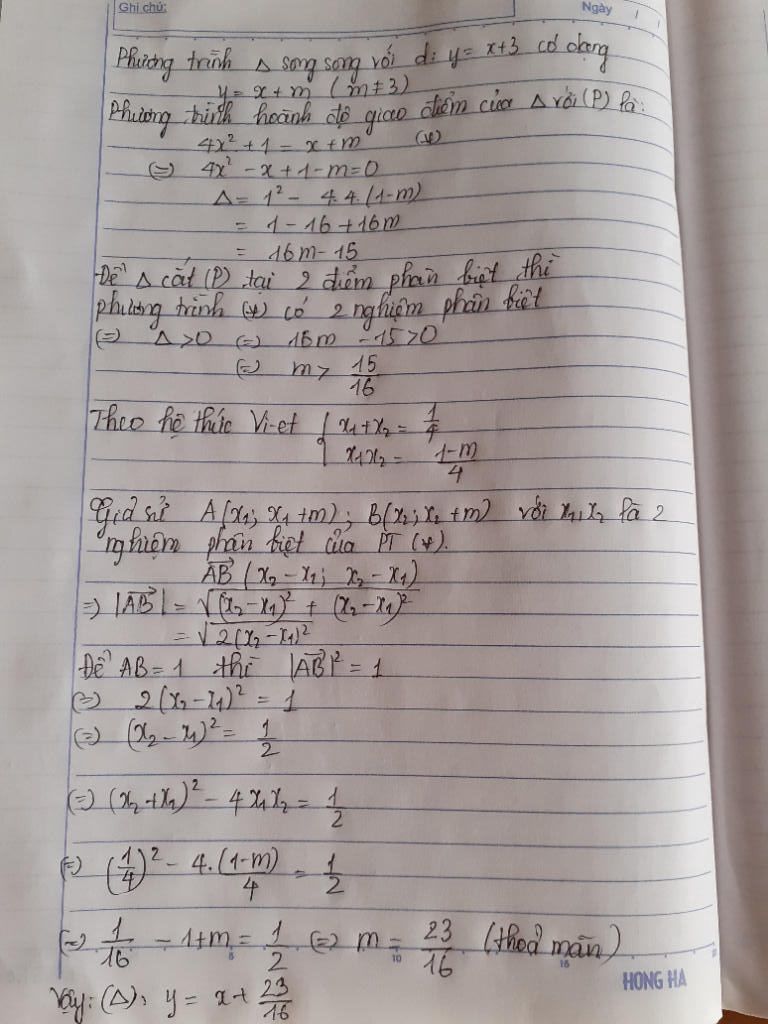 Ghi chú:
Ngày / /
Phương trình Δ song song với d: y = x+3 có dạng
y = x + m (m ≠ 3)
Phương trình hoành độ giao điểm của Δ với (P) là:
4x² + 1 = x + m (*)
(=) 4x² - x + 1 - m = 0
Δ = 1² - 4.4.(1-m)
= 1 - 16 + 16m
= 16m - 15
Để Δ cắt (P) tại 2 điểm phân biệt thì
phương trình (*) có 2 nghiệm phân biệt
(=) Δ > 0 (=) 16m - 15 > 0
(=) m > 15/16
Theo hệ thức Vi-et { x₁ + x₂ = 1/4
x₁x₂ = (1-m)/4
Giả sử A(x₁; x₁+m); B(x₂; x₂+m) với x₁, x₂ là 2
nghiệm phân biệt của PT (*).
AB→ (x₂ - x₁; x₂ - x₁)
=) |AB→| = √((x₂-x₁)² + (x₂-x₁)²)
= √(2(x₂-x₁)²)
Để AB = 1 thì |AB→|² = 1
(=) 2(x₂ - x₁)² = 1
(=) (x₂ - x₁)² = 1/2
(=) (x₂ + x₁)² - 4x₁x₂ = 1/2
(=) (1/4)² - 4.(1-m)/4 = 1/2
(=) 1/16 - 1 + m = 1/2 (=) m = 23/16 (thoả mãn)
5 10 15
HONG HA
Vậy: (Δ): y = x + 23/16